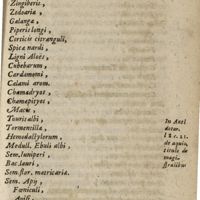 Zingiberis,
Zedoaria,
Galanga,
Piperis longi,
Corticis citranguli,
Spica nardi,
Ligni Aloes,
Cubebarum,
Cardamomi,
Calami arom.
Chamædryos,
Chamæpityos,
Macis,
Touris albi,
Tormentilla,
Hermodactylorum,
Medull. Ebuli albi,
Sem. Iuniperi,
Bac. lauri,
Sem. flor. matricaria.
Sem. Apij,
Fœniculi,
Anisi,
In
de aquis,
titulo de
magi-
stralibus